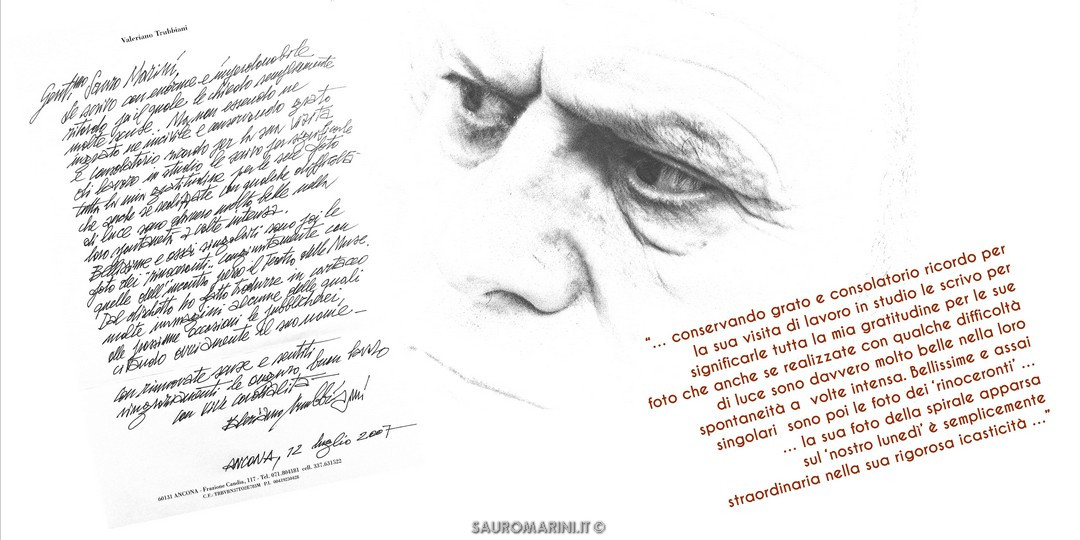 Valeriano Trubbiani
Gent.mo Sauro Marini,
Le scrivo con enorme e imperdonabile
ritardo per il quale le chiedo semplicemente
molte scuse.. Ma non essendo ne
ingrato ne incivile e conservando grato
e consolatorio ricordo per la sua visita
di lavoro in studio le scrivo per significarle
tutta la mia gratitudine per le sue foto
che anche se realizzate con qualche difficoltà
di luce sono davvero molto belle nella
loro spontaneità a volte intensa.
Bellissime e assai singolari sono poi le
foto dei "rinoceronti".. congiuntamente con
quelle dell'incontro verso il Teatro delle Muse.
Dal dischetto ho fatto tradurre in cartaceo
molte immagini alcune delle quali
alle prossime occasioni le pubblicherei,
citando ovviamente il suo nome -
con rinnovate scuse e sentiti
ringraziamenti le auguro buon lavoro
con viva cordialità
Valeriano Trubbiani
ANCONA, 12 luglio 2007
60131 ANCONA - Frazione Candia, 117 - Tel. 071.804181 cell. 337.631522
"... conservando grato e consolatorio ricordo per
la sua visita di lavoro in studio le scrivo per
significarle tutta la mia gratitudine per le sue
foto che anche se realizzate con qualche difficoltà
di luce sono davvero molto belle nella loro
spontaneità a volte intensa. Bellissime e assai
singolari sono poi le foto dei 'rinoceronti' ...
... la sua foto della spirale apparsa
sul 'nostro lunedì' è semplicemente
straordinaria nella sua rigorosa icasticità ..."
SAUROMARINI.IT ©